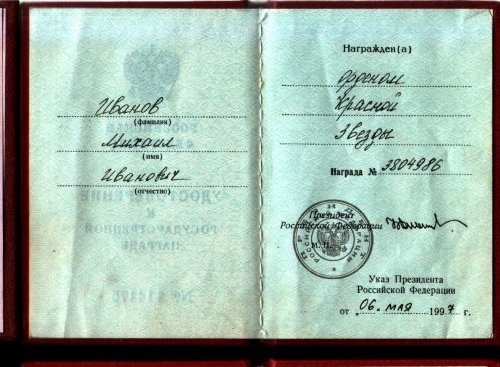 Иванов
(фамилия)
Михаил
(имя)
Иванович
(отчество)
Награжден(а)
орденом
Красной
Звезды
Награда № 3804986
Президент
Российской Федерации
М. П.
Указ Президента
Российской Федерации
от 06. мая 1997 г.